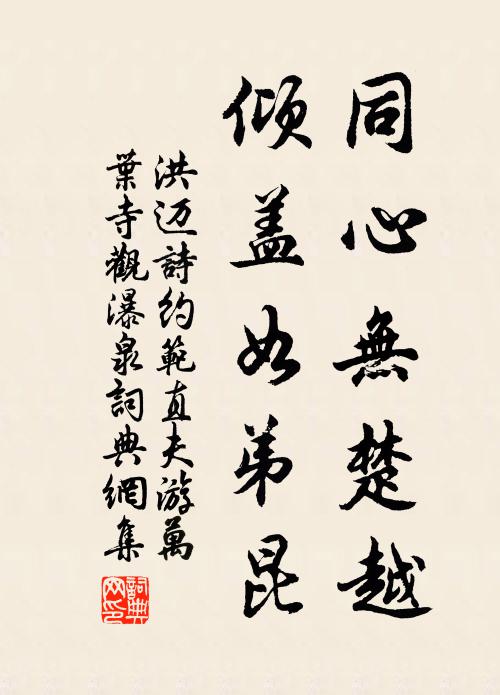 同心無楚越
傾盖如弟昆
洪迈詩約範直夫游萬
葉寺觀瀑泉詞典網集
詞典网印